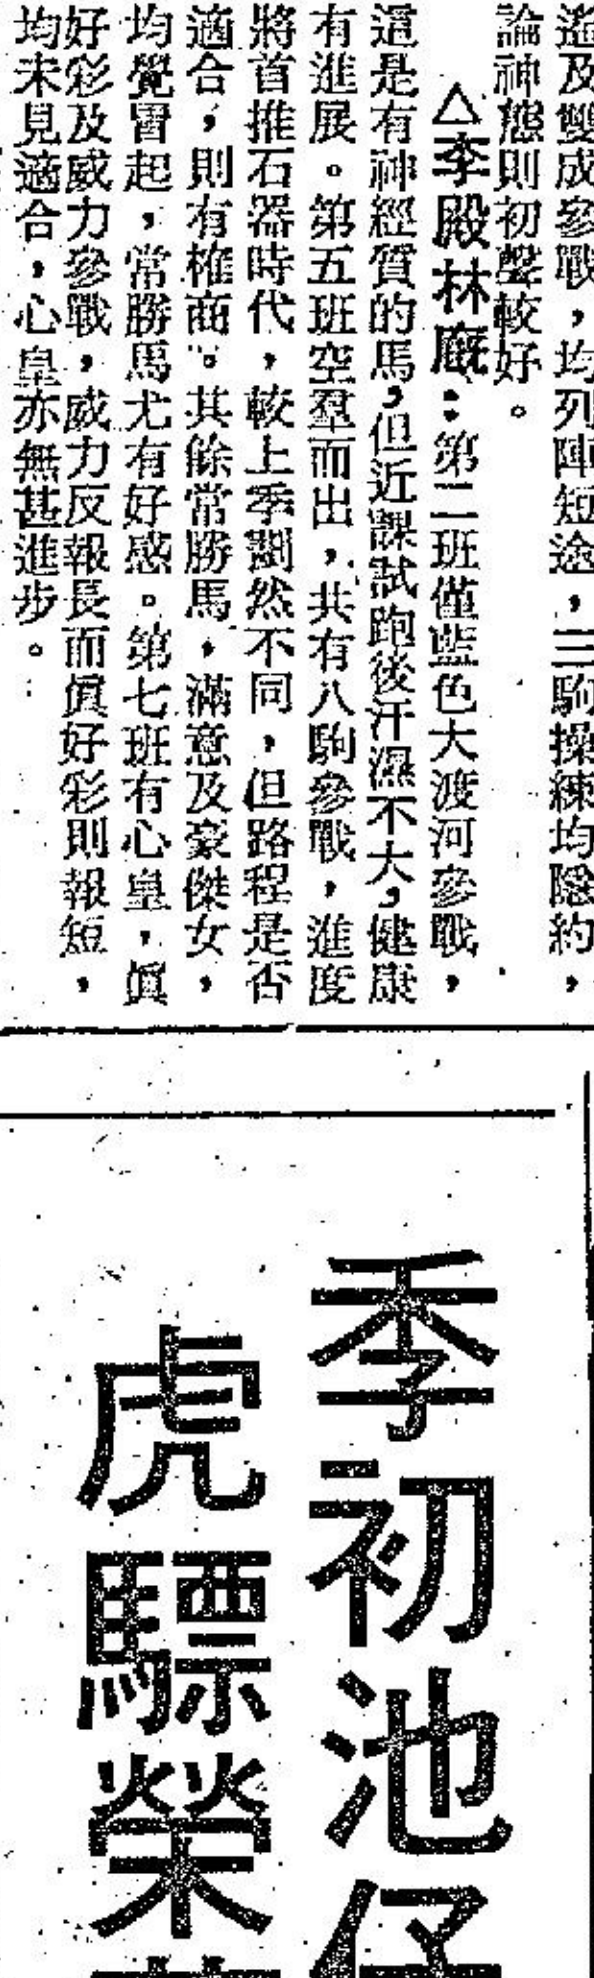 及雙成參戰，均列陣短途，三駒操練均隱約，
論神態則初聲較好。
△李殿林廐：第二班僅藍色大渡河參戰，
這是有神經質的馬，但近課試跑後汗濕不大，健康
有進展。第五班空羣而出，共有八駒參戰，進度
將首推石器時代，較上季劃然不同，但路程是否
適合，則有榷商。其餘常勝馬，滿意及豪傑女，
均覺冒起，常勝馬尤有好感。第七班有心皇，眞
好彩及威力參戰，威力反報長而眞好彩則報短，
均未見適合，心皇亦無甚進步。
季初池仔
虎驃榮